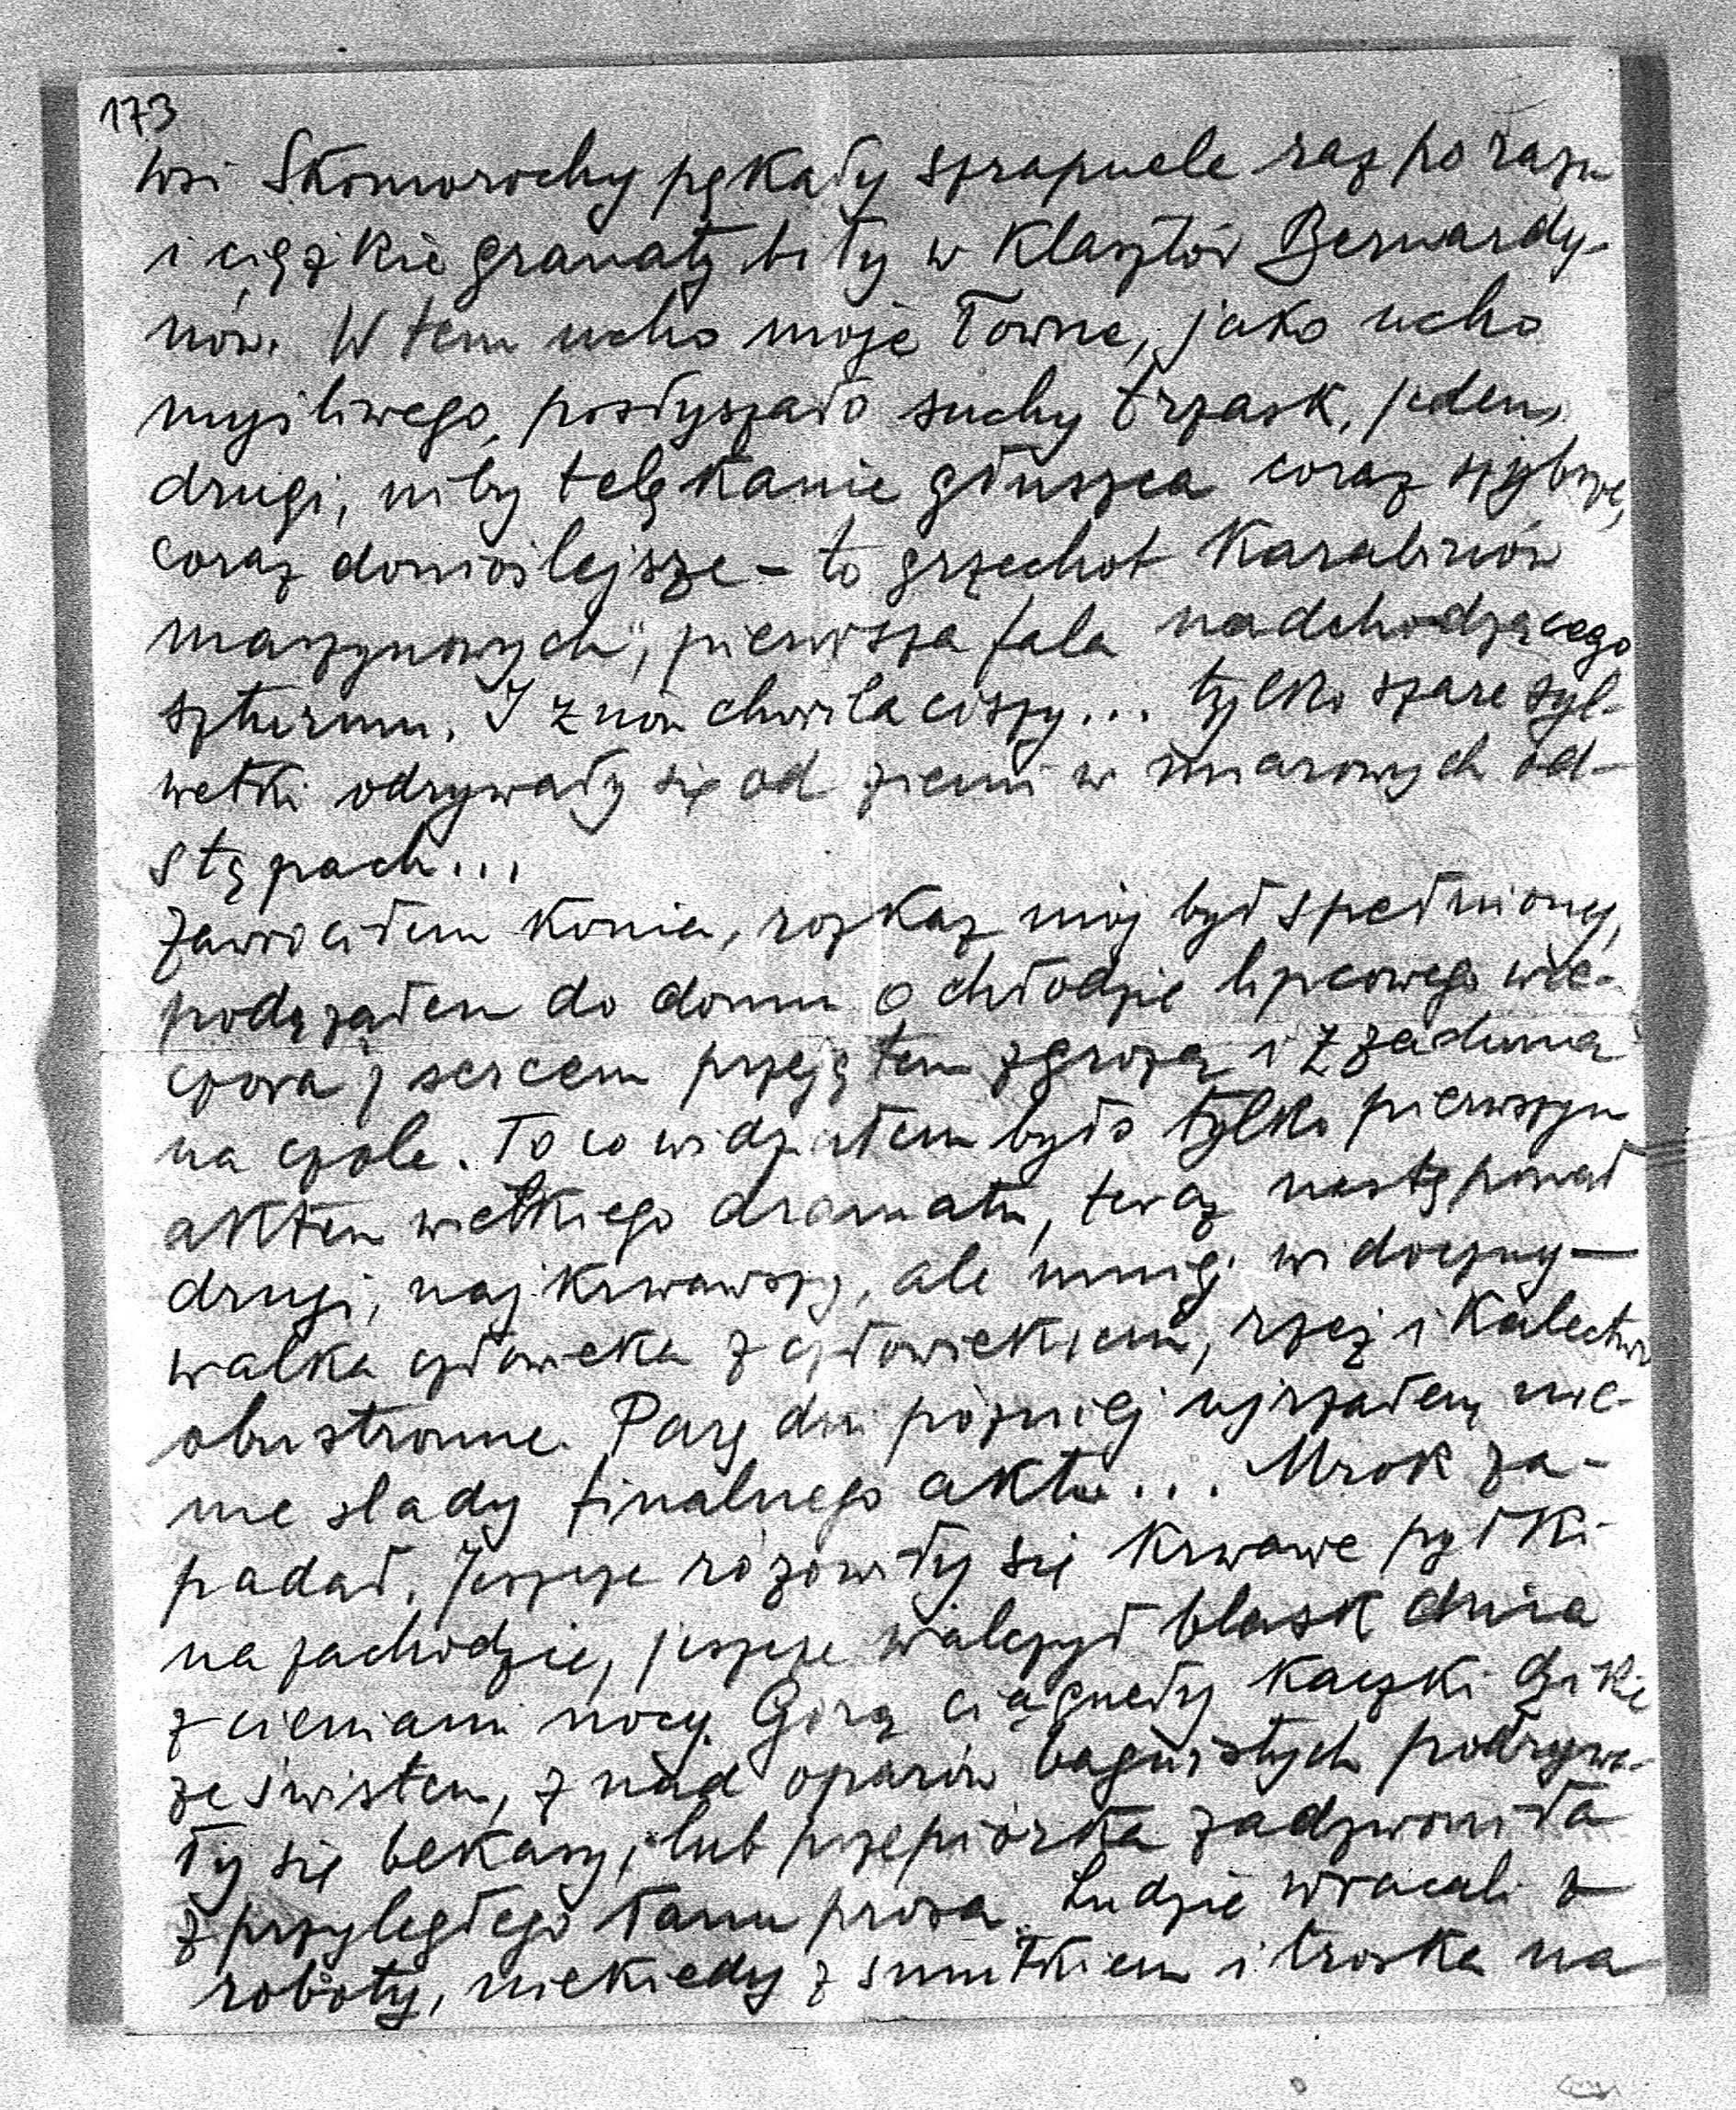 173
wsi Skomorochy pękały szrapnele raz po razu
i ciężkie granaty biły w klasztór Bernardy-
nów. Wtem ucho moje łowne, jako ucho
myśliwego, posłyszało suchy trzask, jeden,
drugi, niby telękanie głuszca coraz szybsze,
coraz donioślejsze – to grzechot karabinów
maszynowych", pierwsza fala nadchodzącego
szturmu. I znów chwila ciszy... tylko szare syl-
wetki odrywały się od ziemi w miarowych od-
stępach...
Zawróciłem konia, rozkaz mój był spełniony,
podążałem do domu o chłodzie lipcowego wie-
czora z sercem przejętem zgrozą i z zadumą
na czole. To co widziałem było tylko pierwszym
aktem wielkiego dramatu, teraz następował
drugi, najkrwawszy, ale mniej widoczny –
walka człowieka z człowiekiem, rzeź i kalectwo
obustronne. Parę dni później ujrzałem nie-
me ślady finalnego aktu... Mrok za-
padał. Jeszcze różowiły się krwawe pyłki
na zachodzie, jeszcze walczył blask dnia
z cieniami nocy. Górą ciągnęły kaczki dzikie
ze świstem, z nad oparów bagnistych podrywa-
ły się bekasy, lub przepiórka zadzwoniła
z przyległego łanu prosa. Ludzie wracali z
roboty, niekiedy z smutkiem i troską na